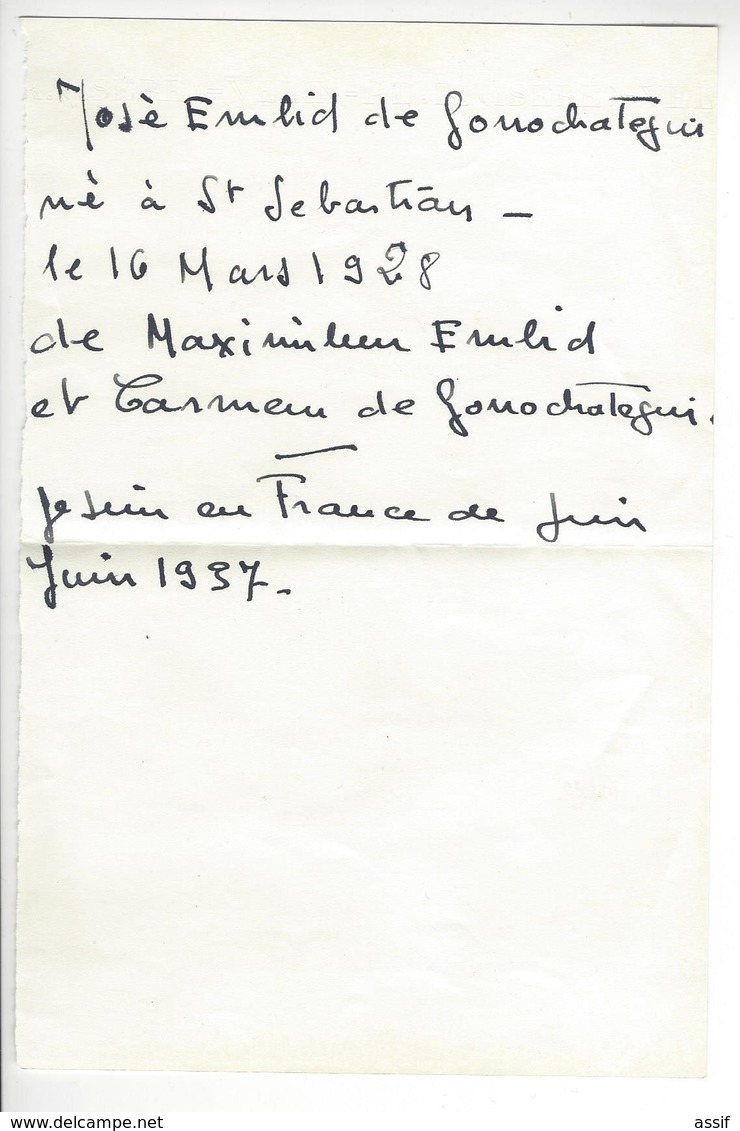 José Emlid de Gorrochategui
né à St Sebastián -
le 16 Mars 1928
de Maximilien Emlid
et Carmen de Gorrochategui.
je suis en France de Juin
Juin 1937.
www.delcampe.net
assif